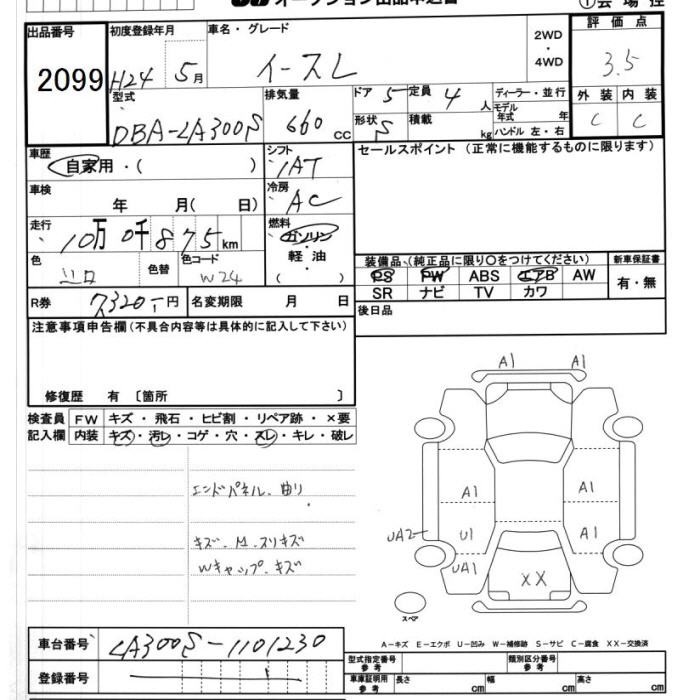 オークション出品申込書 ①会場控
出品番号 初度登録年月 車名・グレード 2WD・4WD 評価点
2099 H24 5月 イースL 3.5
型式 排気量 ドア 5 定員 4 人 ディーラー・並行 外装 内装
DBA-LA300S 660 cc 形状 5 積載 kg モデル年式 年 ハンドル 左・右 C C
車歴 自家用・( ) シフト IAT セールスポイント (正常に機能するものに限ります)
車検 年 月( 日) 冷房 AC
走行 10万 0千 875 km 燃料 ガソリン・軽油 ( )
色 シロ 色替 色コード W24
装備品 (純正品に限り○をつけてください) 新車保証書
PS PW ABS エアB AW 有・無
SR ナビ TV カワ
R券 7,320- 円 名変期限 月 日 後日品
注意事項申告欄(不具合内容等は具体的に記入して下さい)
修復歴 有 〔箇所 〕
検査員 FW キズ・飛石・ヒビ割・リペア跡・×要
記入欄 内装 キズ・汚レ・コゲ・穴・スレ・キレ・破レ
エンドパネル. 曲リ
キズ. M. スリキズ
Wキャップ. キズ
A1 A1
A1 A1
UA2 U1 A1
UA1
XX
スペア
A-キズ E-エクボ U-凹み W-補修跡 S-サビ C-腐食 XX-交換済
車台番号 LA300S-1101230
型式指定番号 参考 類別区分番号 参考
登録番号
車庫証明用 参考 長さ cm 幅 cm 高さ cm